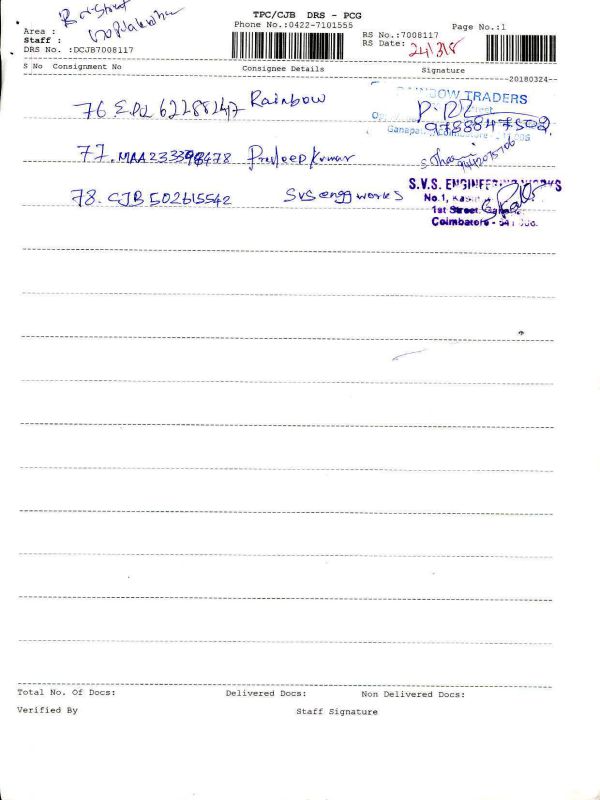 TPC/CJB DRS - PCG
Phone No.:0422-7101555
Page No.:1
Area :
Staff :
DRS No. :DCJB7008117
RS No.:7008117
RS Date: 24/3/18
S No Consignment No Consignee Details Signature
20180324
76 62288247 Rainbow
RAINBOW TRADERS
Ganapathy, Coimbatore
77. MAA233398478 Pradeep Kumar
78. CJB 502615542 SVS engg works
S.V.S. ENGINEERING WORKS
No.1,
1st Street,
Coimbatore - 641 006.
Total No. Of Docs: Delivered Docs: Non Delivered Docs:
Verified By Staff Signature